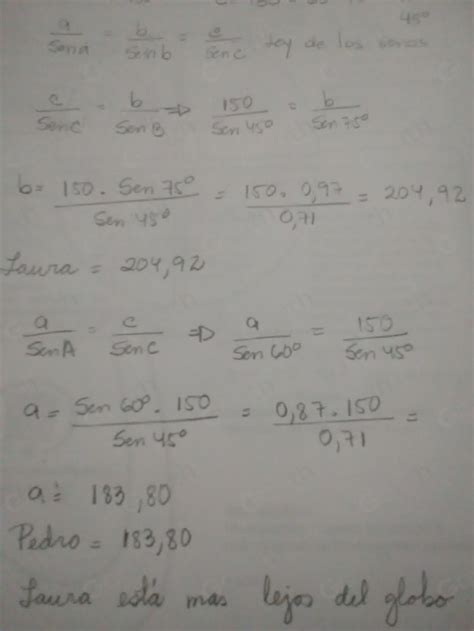 45°
a/SenA = b/Sen b = c/Sen C Ley de los senos
c/SenC = b/Sen B ⇒ 150/Sen 45° = b/Sen 75°
b = 150 · Sen 75°/Sen 45° = 150 · 0,97/0,71 = 204,92
Laura = 204,92
a/SenA = c/SenC ⇒ a/Sen 60° = 150/Sen 45°
a = Sen 60° · 150/Sen 45° = 0,87 · 150/0,71 =
a = 183,80
Pedro = 183,80
Laura está mas lejos del globo